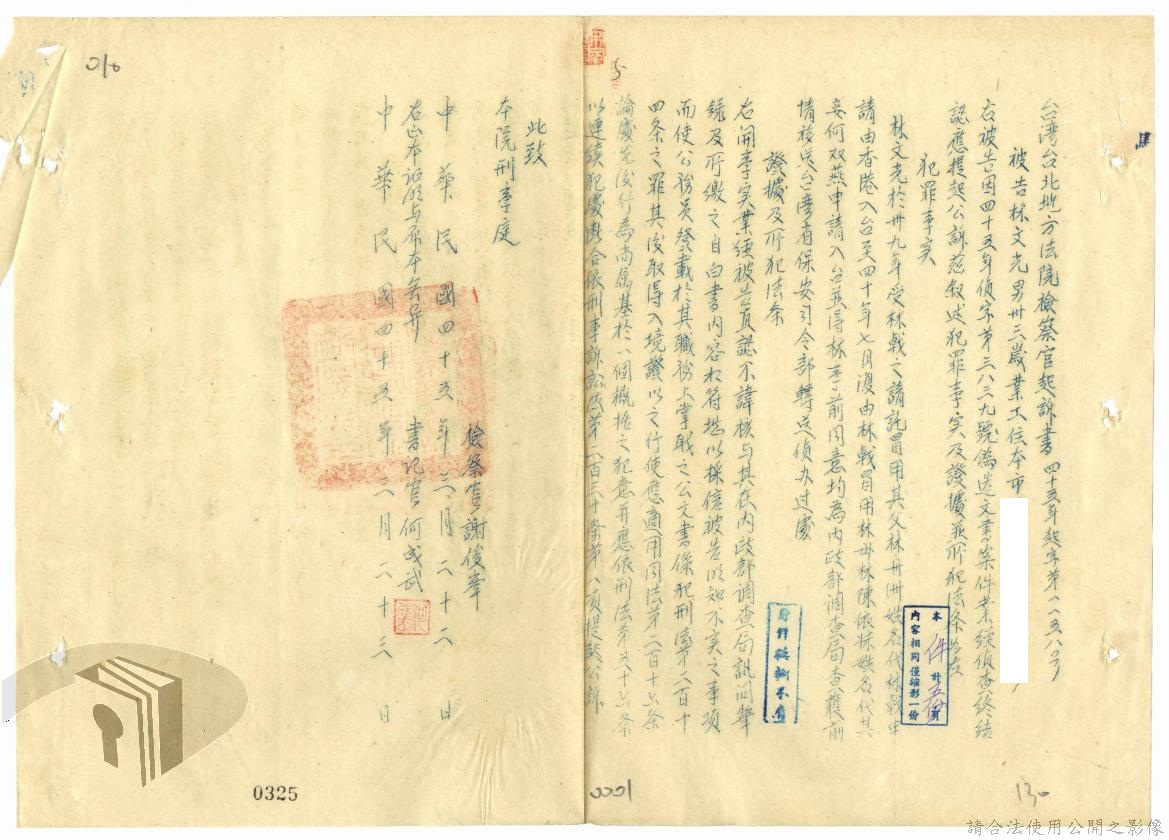 台湾台北地方法院檢察官起訴書 四十五年起字第一一五八〇号
被告林文光男卅三歲業工住本市
右被告因四十五年偵字第三八三九號偽造文書案件業經偵查終結
認應提起公訴茲叙述犯罪事实及證據並所犯法条
犯罪事实
林文光於卅九年受林戟之請託冒用其父林卅卅姓名代林戟申
請由香港入台至四十年七月復由林戟冒用林母林陳依妹姓名代其
妾何双燕申請入台並得林事前同意均為内政部調查局查獲前
情移送台湾省保安司令部轉送偵办过處
證據及所犯法条
右開事实業經被告直認不諱核与其在内政部調查局訊问筆
録及所繳之自白書内容相符堪以採信被告明知不实之事項
而使公務員登載於其職務上掌管之公文書係犯刑法第二百十
四条之罪其後取得入境證以之行使應適用同法第二百十六条
論處先後行為尚属基於一個概括之犯意并應依刑法第五十六条
以連續犯處断合依刑事訴訟法第二百三十条第一項提起公訴
此致
本院刑事庭
檢察官謝俊峯
中華民國四十五年三月二十二日
右正本証明与原本無異
書記官何成武
中華民國四十五年三月二十三日
本件計頁
内容相同僅縮影一份
0325
0001
130
請合法使用公開之影像